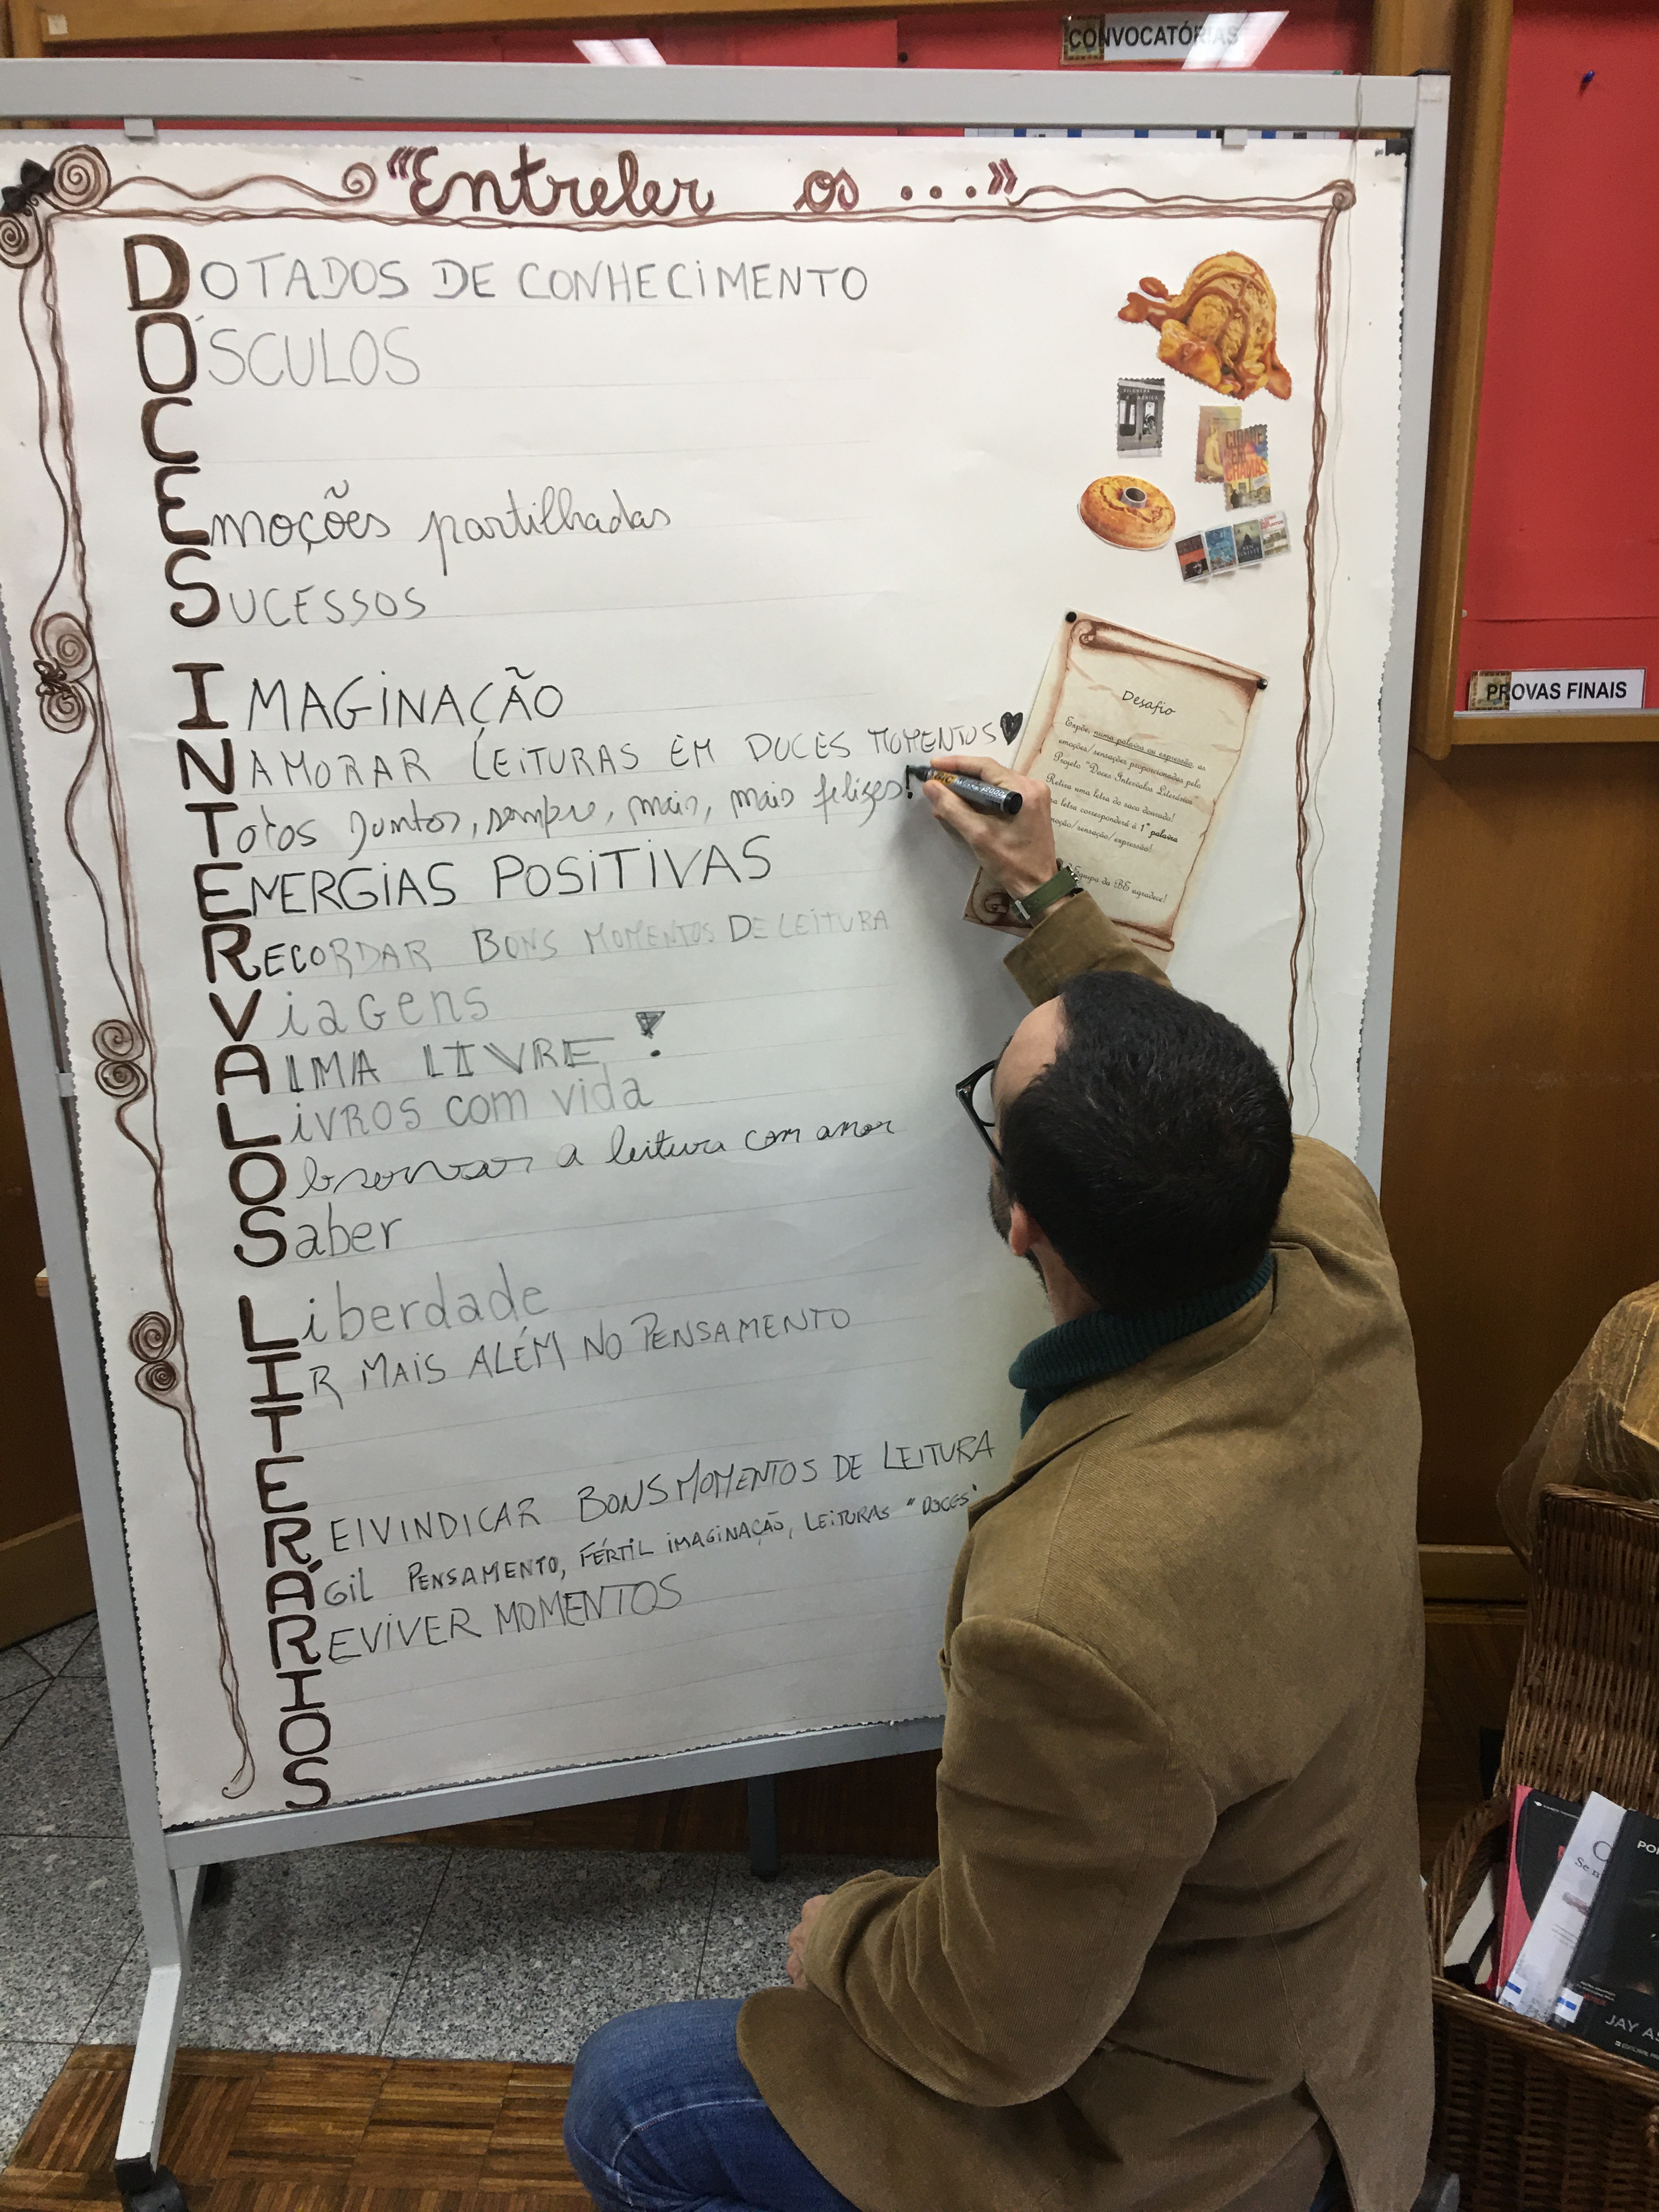 CONVOCATÓRIAS
"Entreler os ..."
DOTADOS DE CONHECIMENTO
ÓSCULOS
C
Emoções partilhadas
SUCESSOS
IMAGINAÇÃO
NAMORAR LEITURAS EM DOCES MOMENTOS
Todos Juntos, sempre, mais, mais felizes!
ENERGIAS POSITIVAS
RECORDAR BONS MOMENTOS DE LEITURA
Viagens
ALMA LIVRE!
LIVROS com vida
Observar a leitura com amor
Saber
Liberdade
IR MAIS ALÉM NO PENSAMENTO
T
E
REIVINDICAR BONS MOMENTOS DE LEITURA
ÁGIL PENSAMENTO, FÉRTIL IMAGINAÇÃO, LEITURAS "DOCES"
REVIVER MOMENTOS
I
O
S
CIDADE EM CHAMAS
Desafio
Expõe, numa palavra ou expressão, as
emoções/sensações proporcionadas pelo
Projeto "Doces Intervalos Literários
Retira uma letra do saco dourado!
letra corresponderá à 1ª palavra
emoção/sensação/expressão!
Equipa da BE agradece!
PROVAS FINAIS
BIC
JAY